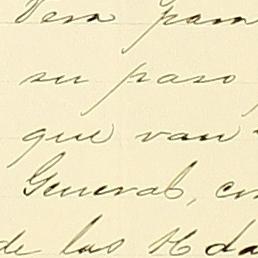 Vera para
su paso
que van
General, co
de las Hda